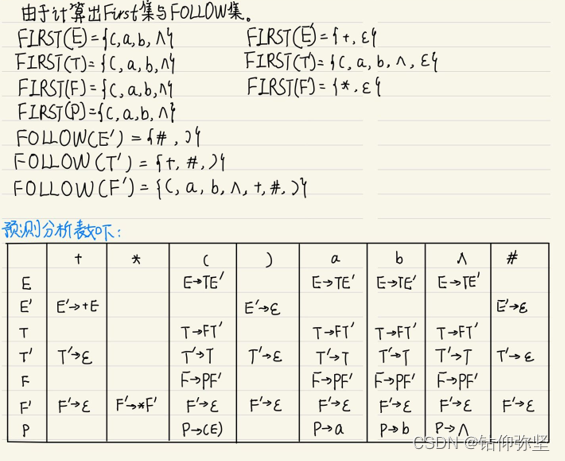 由于计算出First集与FOLLOW集。
FIRST(E)={(,a,b,∧} FIRST(E')={+,ε}
FIRST(T)={(,a,b,∧} FIRST(T')={(,a,b,∧,ε}
FIRST(F)={(,a,b,∧} FIRST(F')={*,ε}
FIRST(P)={(,a,b,∧}
FOLLOW(E')={#,)}
FOLLOW(T')={+,#,)}
FOLLOW(F')={(,a,b,∧,+,#,)}
预测分析表如下:
+ * ( ) a b ∧ #
E E→TE' E→TE' E→TE' E→TE'
E' E'→+E E'→ε E'→ε
T T→FT' T→FT' T→FT' T→FT'
T' T'→ε T'→T T'→ε T'→T T'→T T'→T T'→ε
F F→PF' F→PF' F→PF' F→PF'
F' F'→ε F'→*F' F'→ε F'→ε F'→ε F'→ε F'→ε F'→ε
P P→(E) P→a P→b P→∧
CSDN @钻仰弥坚